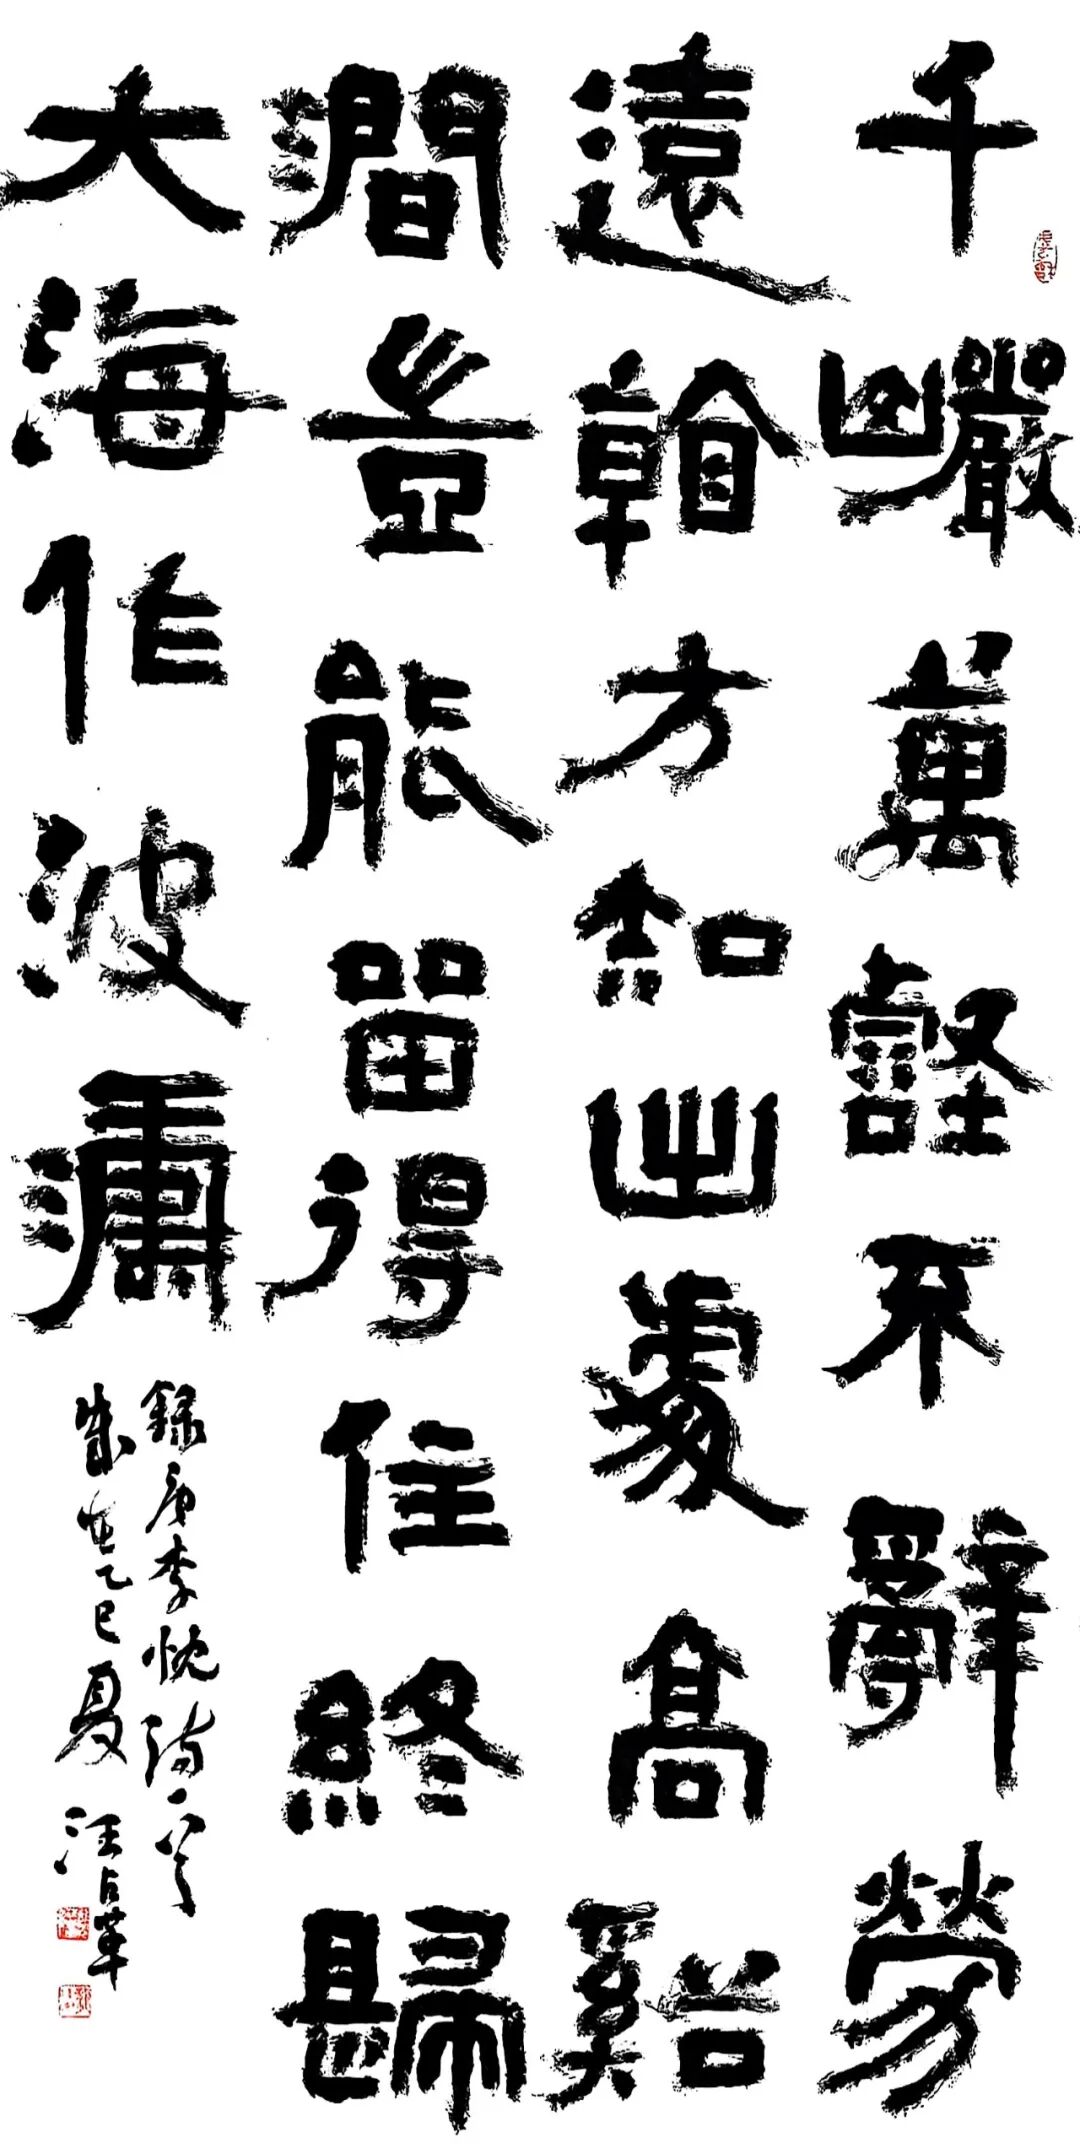 千巖萬壑不辭勞
遠看方知出處高谿
澗豈能留得住終歸
大海作波濤
錄唐李忱詩一首
歲在乙巳夏 汪占革